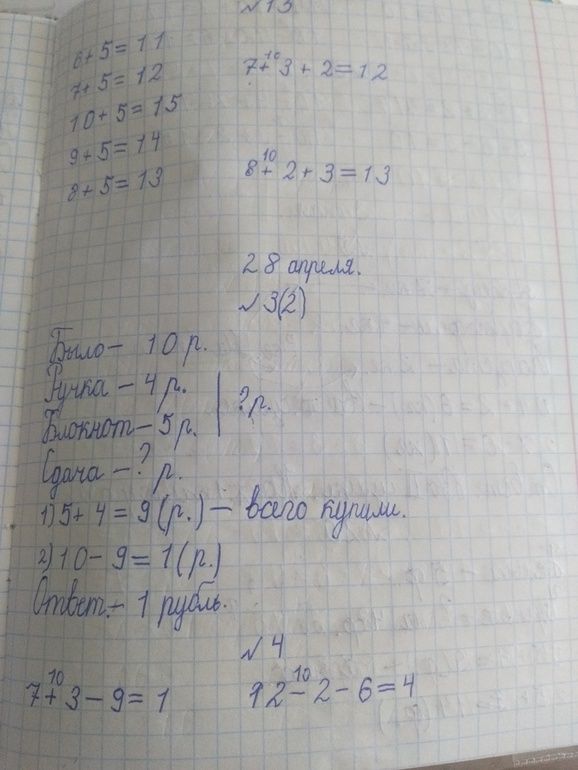 №13
6+5=11
7+5=12
10+5=15
9+5=14
8+5=13
10
7+3+2=12
10
8+2+3=13
28 апреля.
№3(2)
Было – 10 р.
Ручка – 4 р.
Блокнот – 5 р.
?р.
Сдача – ? р.
1) 5+4=9(р.) – всего купили.
2) 10-9=1(р.)
Ответ. – 1 рубль.
№4
10
7+3-9=1
10
12-2-6=4